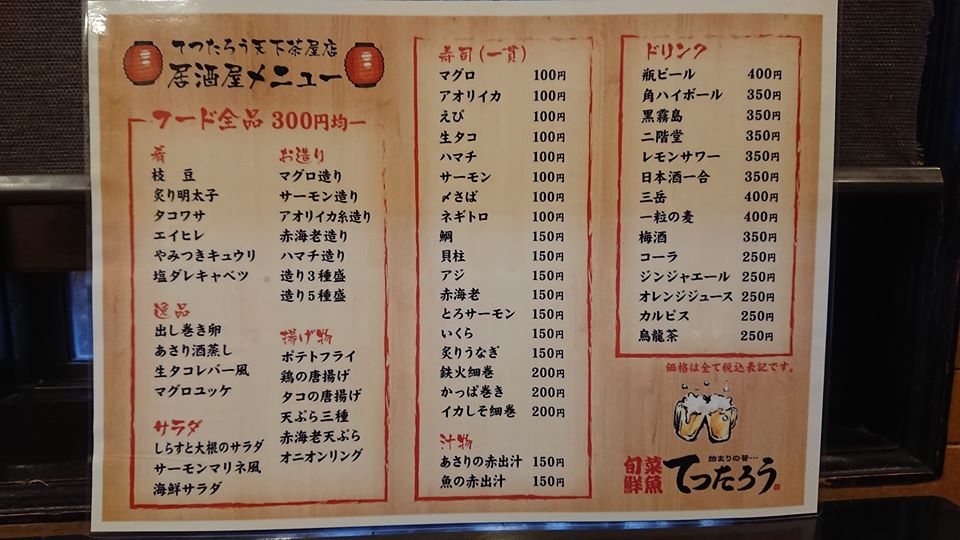 てつたろう天下茶屋店
居酒屋メニュー
フード全品 300円均一
肴
枝 豆
炙り明太子
タコワサ
エイヒレ
やみつきキュウリ
塩ダレキャベツ
逸品
出し巻き卵
あさり酒蒸し
生タコレバー風
マグロユッケ
サラダ
しらすと大根のサラダ
サーモンマリネ風
海鮮サラダ
お造り
マグロ造り
サーモン造り
アオリイカ糸造り
赤海老造り
ハマチ造り
造り3種盛
造り5種盛
揚げ物
ポテトフライ
鶏の唐揚げ
タコの唐揚げ
天ぷら三種
赤海老天ぷら
オニオンリング
寿司(一貫)
マグロ 100円
アオリイカ 100円
えび 100円
生タコ 100円
ハマチ 100円
サーモン 100円
〆さば 100円
ネギトロ 100円
鯛 150円
貝柱 150円
アジ 150円
赤海老 150円
とろサーモン 150円
いくら 150円
炙りうなぎ 150円
鉄火細巻 200円
かっぱ巻き 200円
イカしそ細巻 200円
汁物
あさりの赤出汁 150円
魚の赤出汁 150円
ドリンク
瓶ビール 400円
角ハイボール 350円
黒霧島 350円
二階堂 350円
レモンサワー 350円
日本酒一合 350円
三岳 400円
一粒の麦 400円
梅酒 350円
コーラ 250円
ジンジャエール 250円
オレンジジュース 250円
カルピス 250円
烏龍茶 250円
価格は全て税込表記です。
始まりの昔…
旬菜
鮮魚
てつたろう